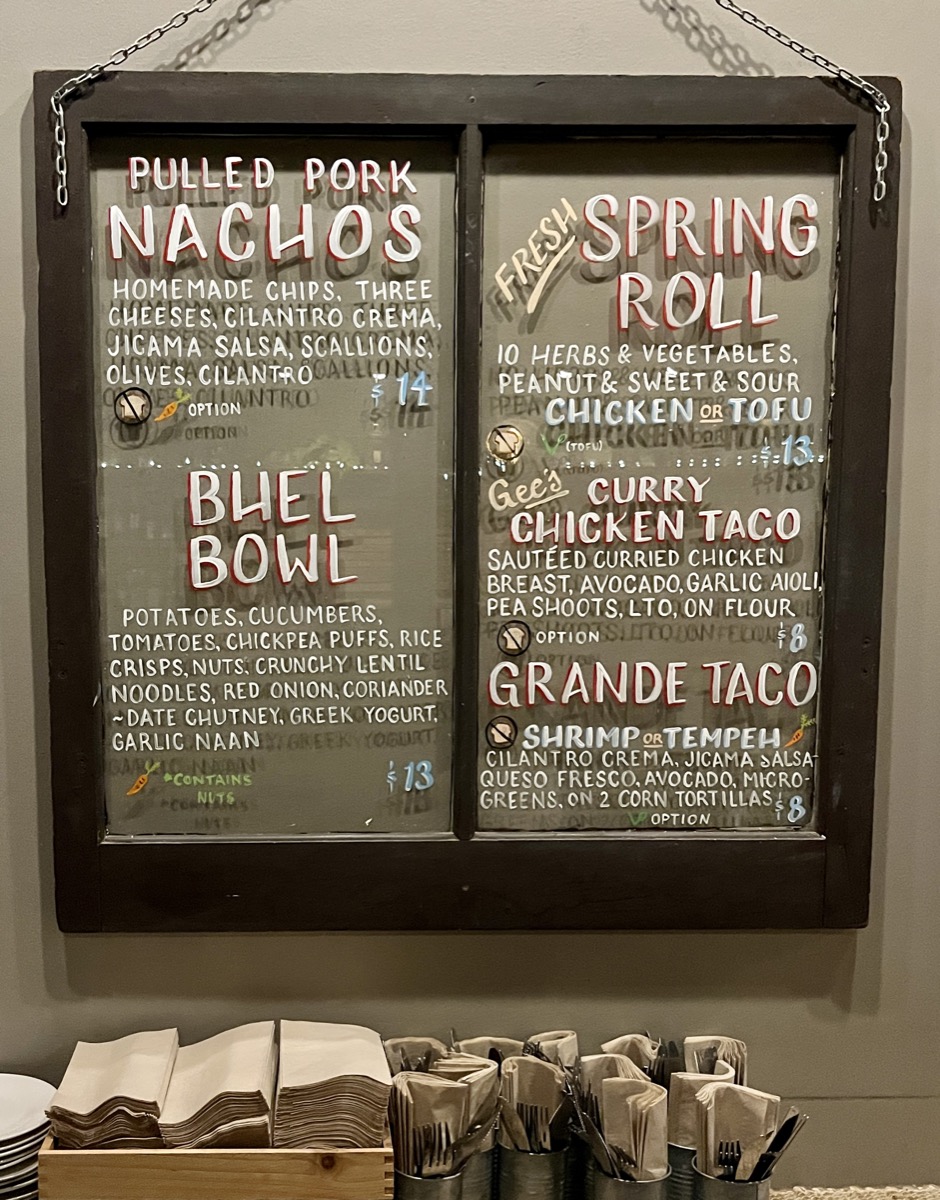 PULLED PORK
NACHOS
HOMEMADE CHIPS, THREE
CHEESES, CILANTRO CREMA,
JICAMA SALSA, SCALLIONS,
OLIVES, CILANTRO
$14
OPTION
BHEL
BOWL
POTATOES, CUCUMBERS,
TOMATOES, CHICKPEA PUFFS, RICE
CRISPS, NUTS, CRUNCHY LENTIL
NOODLES, RED ONION, CORIANDER
~DATE CHUTNEY, GREEK YOGURT,
GARLIC NAAN
*CONTAINS
NUTS
$13
FRESH SPRING
ROLL
10 HERBS & VEGETABLES,
PEANUT & SWEET & SOUR
CHICKEN OR TOFU
V (TOFU)
$13
Gee's CURRY
CHICKEN TACO
SAUTÉED CURRIED CHICKEN
BREAST, AVOCADO, GARLIC AIOLI,
PEA SHOOTS, LTO, ON FLOUR
OPTION
$8
GRANDE TACO
SHRIMP OR TEMPEH
CILANTRO CREMA, JICAMA SALSA
QUESO FRESCO, AVOCADO, MICRO-
GREENS, ON 2 CORN TORTILLAS $8
V OPTION